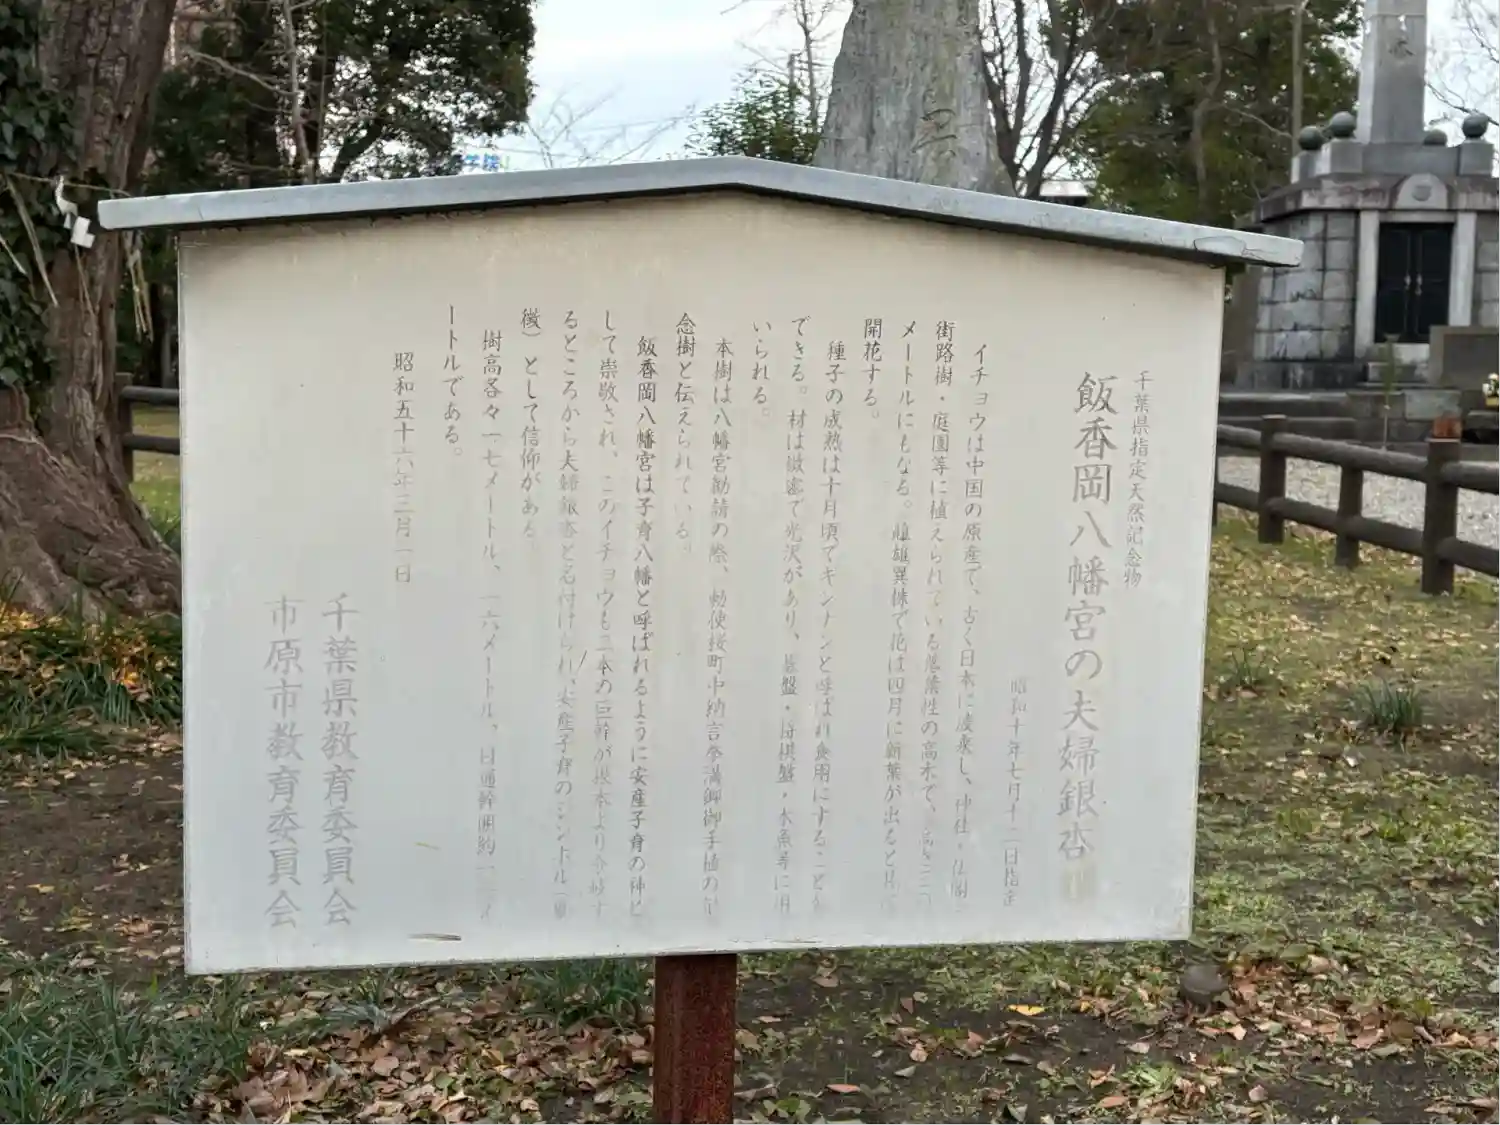 千葉県指定天然記念物
飯香岡八幡宮の夫婦銀杏
昭和十年七月十二日指定
イチョウは中国の原産で、古く日本に渡来し、神社・仏閣
街路樹・庭園等に植えられている落葉性の高木で、高さ三〇
メートルにもなる。雌雄異株で花は四月に新葉が出ると共に
開花する。
種子の成熟は十月頃でギンナンと呼ばれ食用にすることが
できる。材は緻密で光沢があり、碁盤・将棋盤・木魚等に用
いられる。
本樹は八幡宮勧請の際、勅使桜町中納言季満卿御手植の記
念樹と伝えられている。
飯香岡八幡宮は子育八幡と呼ばれるように安産子育の神と
して崇敬され、このイチョウも二本の巨幹が根本より分岐す
るところから夫婦銀杏と名付けられ、安産子育のシンボル（象
徴）として信仰がある
樹高各々一七メートル、一六メートル、目通幹囲約一 メ
ートルである。
昭和五十六年三月一日
千葉県教育委員会
市原市教育委員会